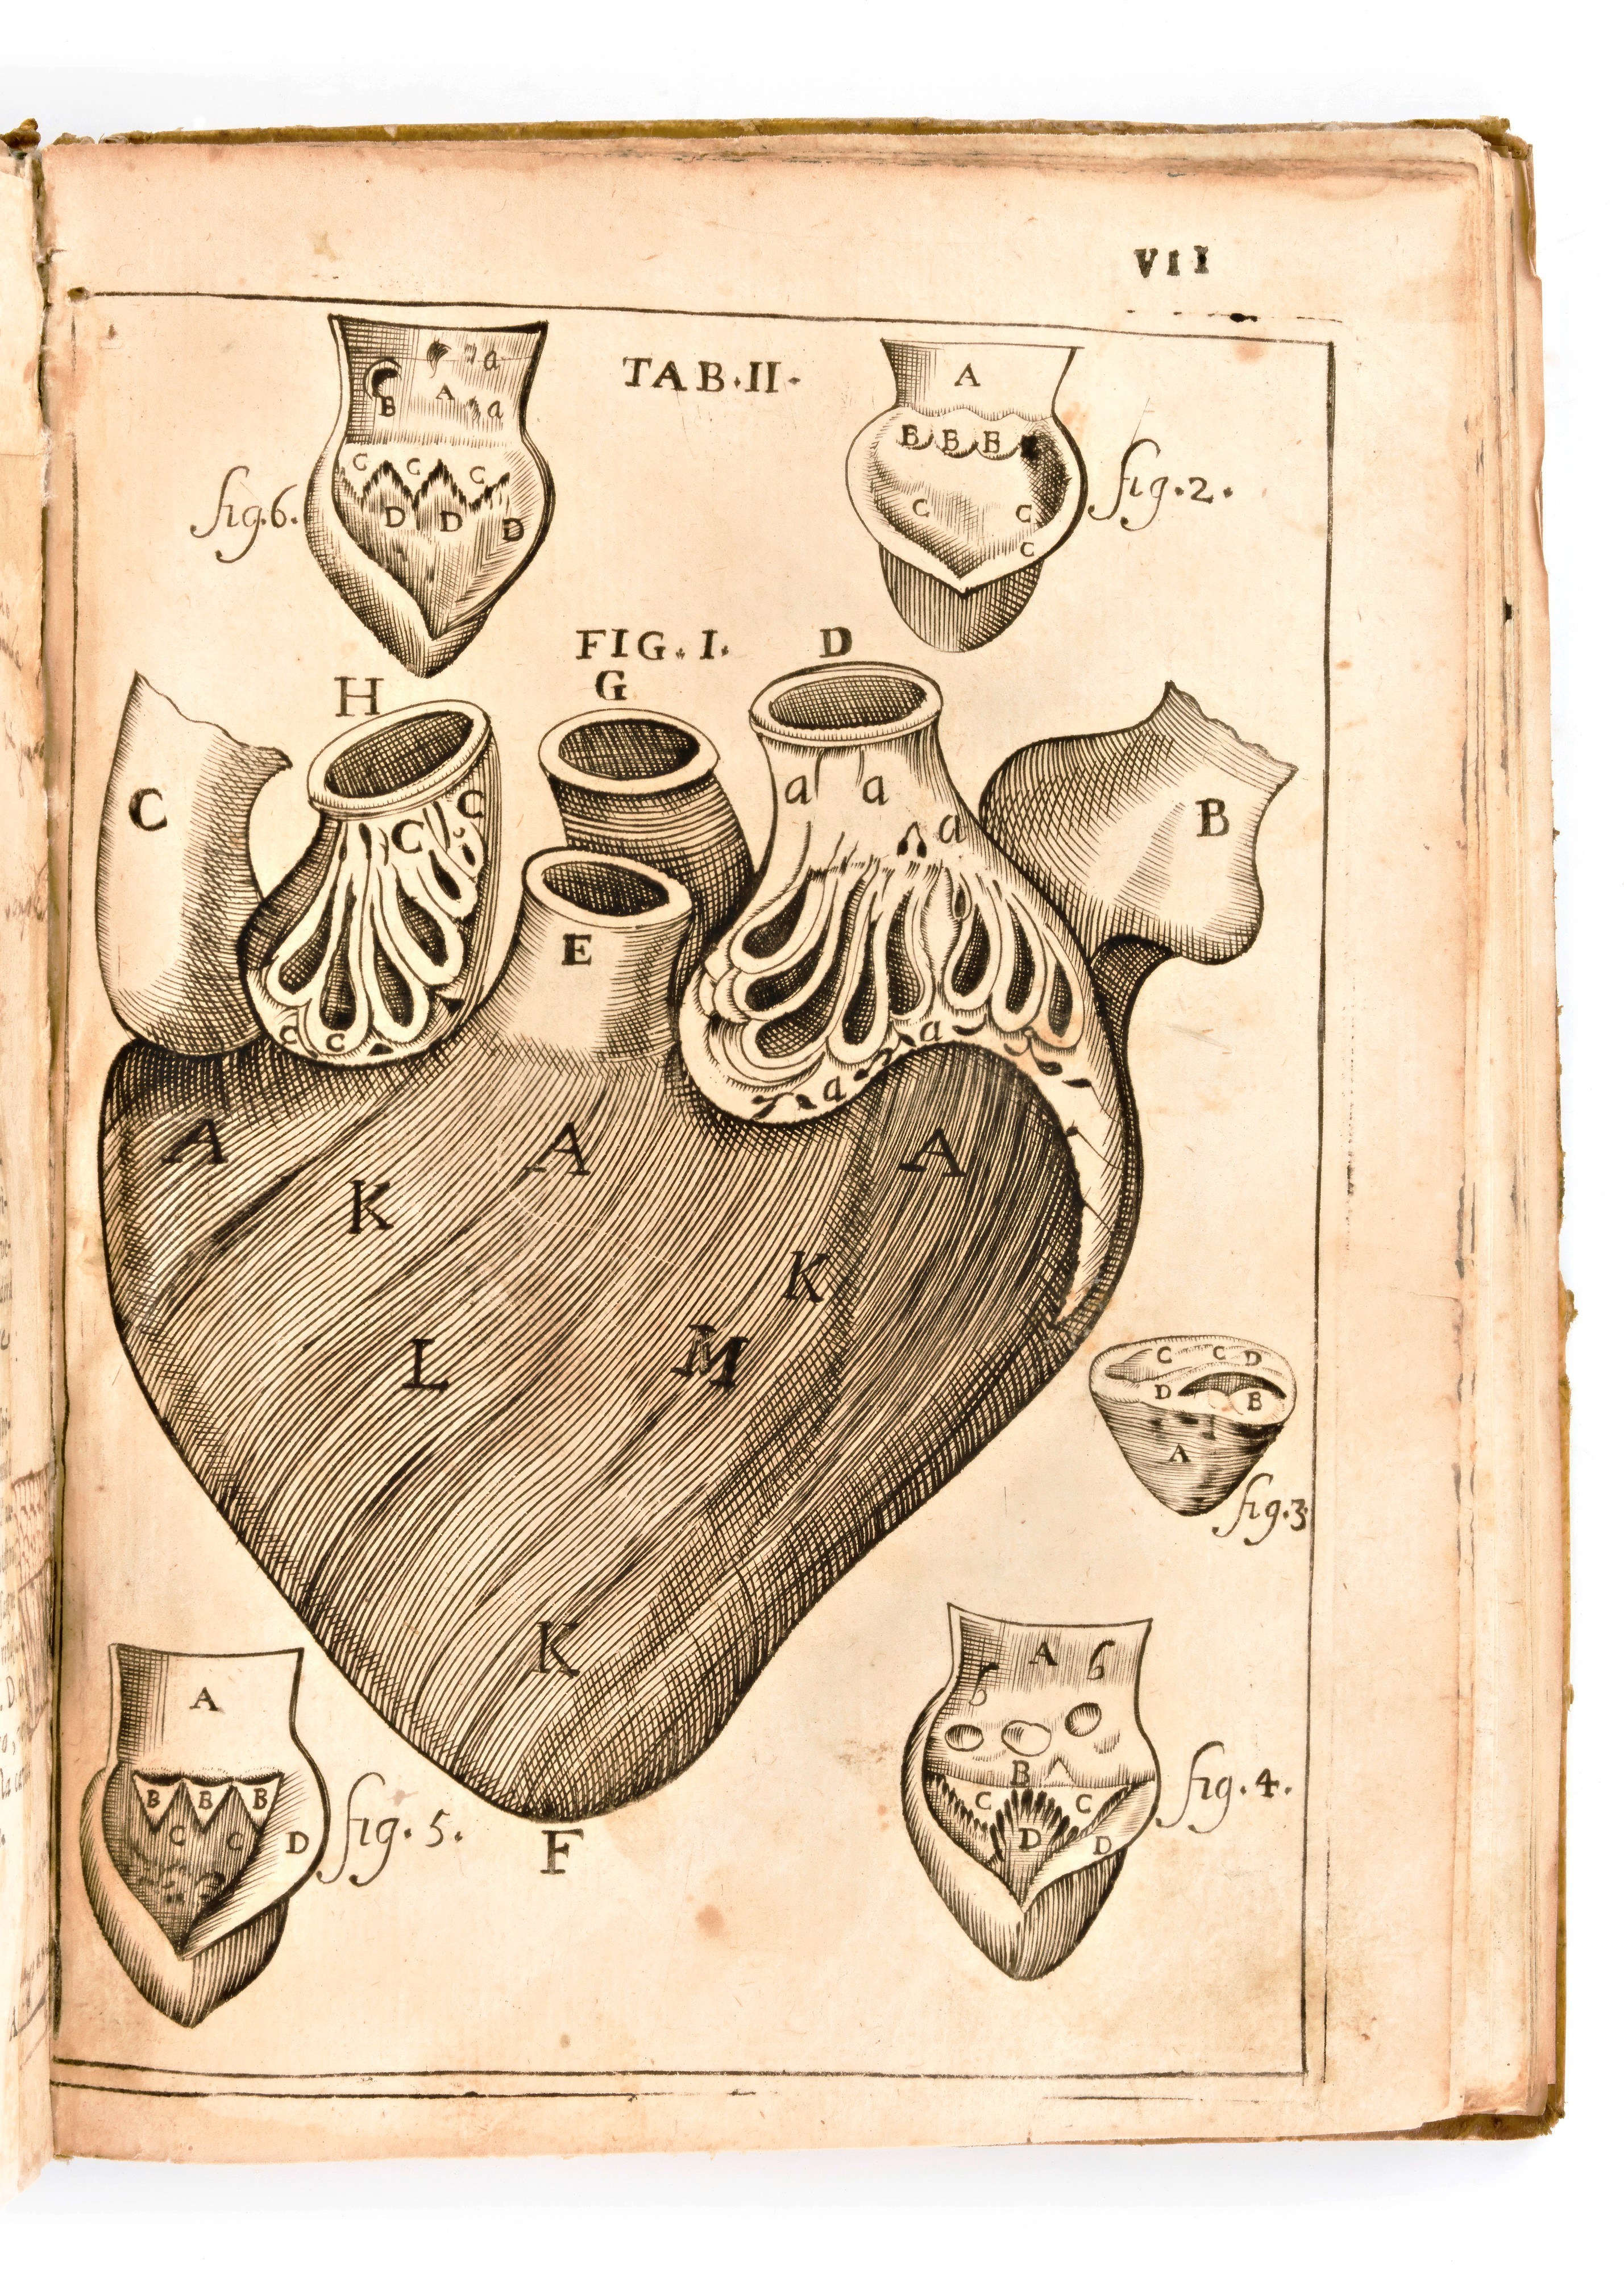 VII
TAB·II·
a
A
B
a
C C C
D D D
fig.6.
A
B B B
C C
C
fig.2.
FIG. I.
H G D
C
C C
a a
a
B
E
C C
a
a
A A A
K
K
L M
K
F
C C D
D B
A
fig.3
A
B B B
C C D
fig.5.
A
B
C C
D D
fig.4.